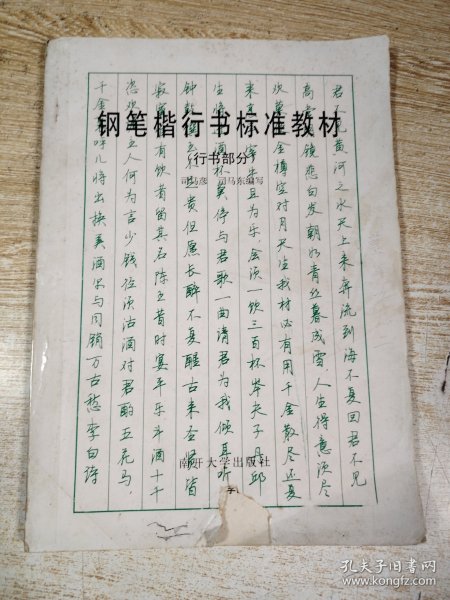 钢笔楷行书标准教材
(行书部分)
司马彦 司马东编写
南开大学出版社
君不见黄河之水天上来奔流到海不复回君不见
高镜悲白发朝如青丝暮成雪,人生得意须尽
欢莫金樽空对月天生我材必有用千金散尽还复
来烹宰牛且为乐,会须一饮三百杯岑夫子丹邱
生将酒杯莫停与君歌一曲请君为我倾耳听
钟鼓玉不足贵但愿长醉不复醒古来圣贤皆
寂有饮者留其名陈王昔时宴平乐斗酒十千
恣欢主人何为言少钱径须沽酒对君酌五花马,
千金呼儿将出换美酒与同销万古愁李白诗
孔夫子旧书网
www.kongfz.com